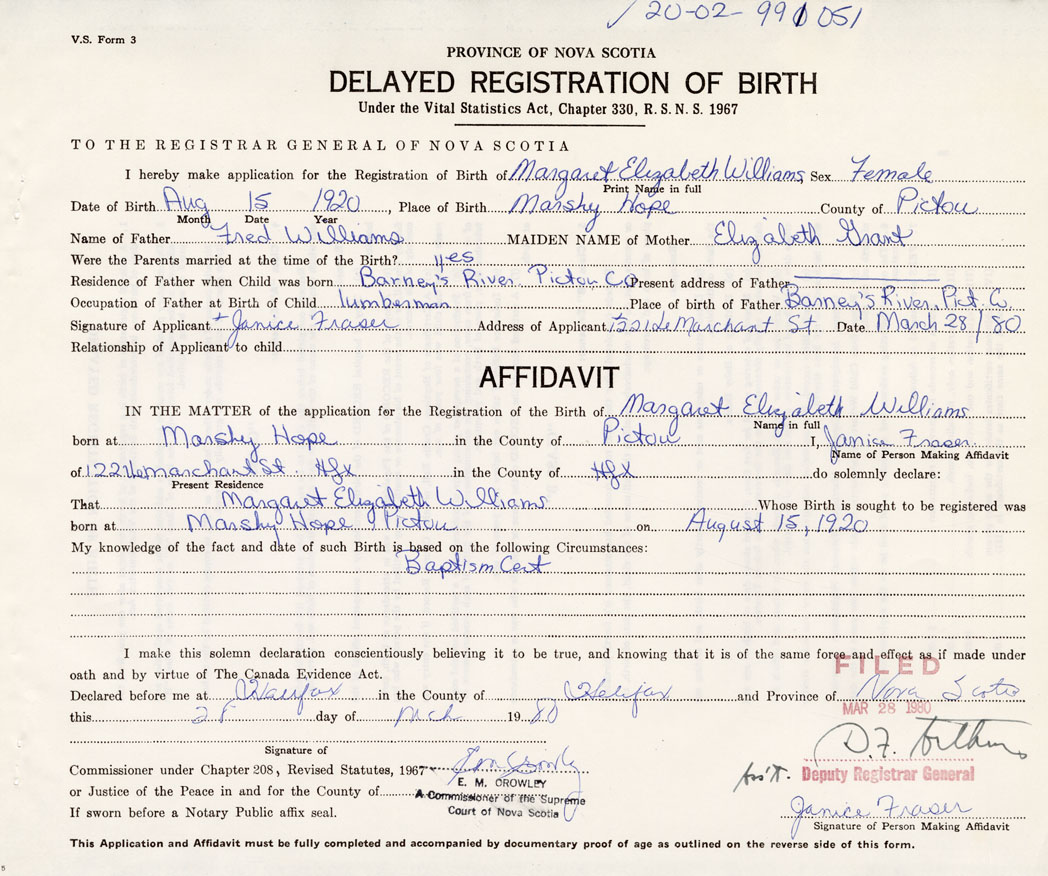 20-02-99 051
V.S. Form 3
PROVINCE OF NOVA SCOTIA
DELAYED REGISTRATION OF BIRTH
Under the Vital Statistics Act, Chapter 330, R.S.N.S. 1967
TO THE REGISTRAR GENERAL OF NOVA SCOTIA
I hereby make application for the Registration of Birth of Margaret Elizabeth Williams Sex Female
Print Name in full
Date of Birth Aug 15 1920, Place of Birth Marshy Hope County of Pictou
Month Date Year
Name of Father Fred Williams MAIDEN NAME of Mother Elizabeth Grant
Were the Parents married at the time of the Birth? yes
Residence of Father when Child was born Barney's River Pictou Co Present address of Father
Occupation of Father at Birth of Child lumberman Place of birth of Father Barney's River, Pict. Co.
Signature of Applicant Janice Fraser Address of Applicant LeMarchant St Date March 28/80
Relationship of Applicant to child
AFFIDAVIT
IN THE MATTER of the application for the Registration of the Birth of Margaret Elizabeth Williams
Name in full
born at Marshy Hope in the County of Pictou I, Janice Fraser
Name of Person Making Affidavit
of 1221 Lemarchant St. Hfx in the County of Hfx do solemnly declare:
Present Residence
That Margaret Elizabeth Williams Whose Birth is sought to be registered was
born at Marshy Hope Pictou on August 15, 1920
My knowledge of the fact and date of such Birth is based on the following Circumstances:
Baptism Cert
I make this solemn declaration conscientiously believing it to be true, and knowing that it is of the same force and effect as if made under
oath and by virtue of The Canada Evidence Act.
FILED
Declared before me at Halifax in the County of Halifax and Province of Nova Scotia
MAR 28 1980
this 28 day of Mch 1980
Signature of
Commissioner under Chapter 208, Revised Statutes, 1967
E. M. CROWLEY
Ass't. Deputy Registrar General
or Justice of the Peace in and for the County of
A Commissioner of the Supreme
Court of Nova Scotia
Janice Fraser
If sworn before a Notary Public affix seal.
Signature of Person Making Affidavit
This Application and Affidavit must be fully completed and accompanied by documentary proof of age as outlined on the reverse side of this form.
5